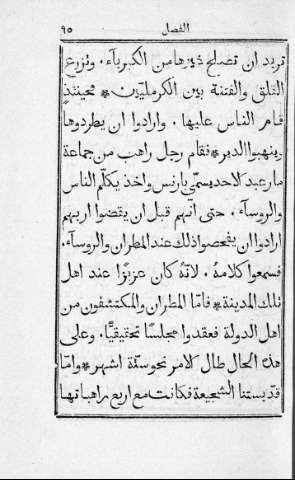 الفصل ٩٥
تريد ان تصلح ديرها من الكبريآء. وتزرع
القلق والفتنة بين الكرمليّين * فحينئذٍ
قام الناس عليها. وارادوا ان يطردوها
وينهبوا الدير * فقام رجل راهب من جماعة
مار عبد الاحد يسمّي بارنس واخذ يكلّم الناس
والروسآء. حتى انّهم قبل ان يقضوا اربهم
ارادوا ان يفحصوا ذلك عند المطران والروسآء.
فسمعوا كلامهُ. لانّهُ كان عزيزًا عند اهل
تلك المدينة * فامّا المطران والمكتشفون من
اهل الدولة فعقدوا مجلسًا تحقيقيًّا. وعلى
هذه الحال طال الامر نحو ستّة اشهر * وامّا
قدّيستنا الشجيعة فكانت مع اربع راهباتها